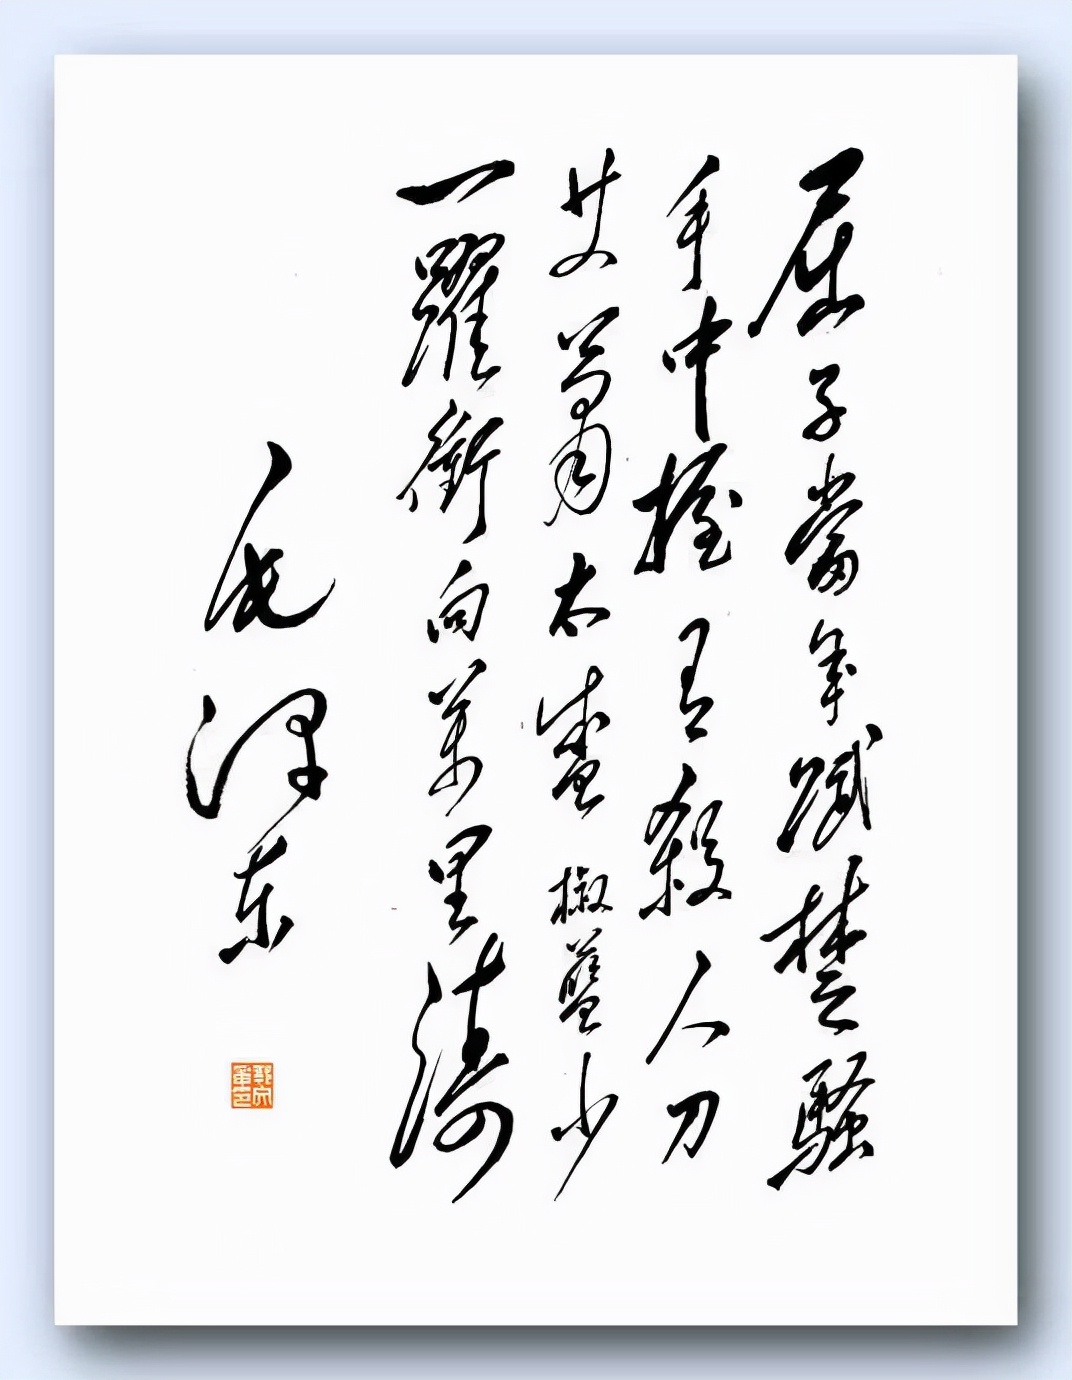 屈子當年賦楚騷
手中握有殺人刀
艾蕭太盛椒蘭少
一躍衝向萬里濤
毛澤東